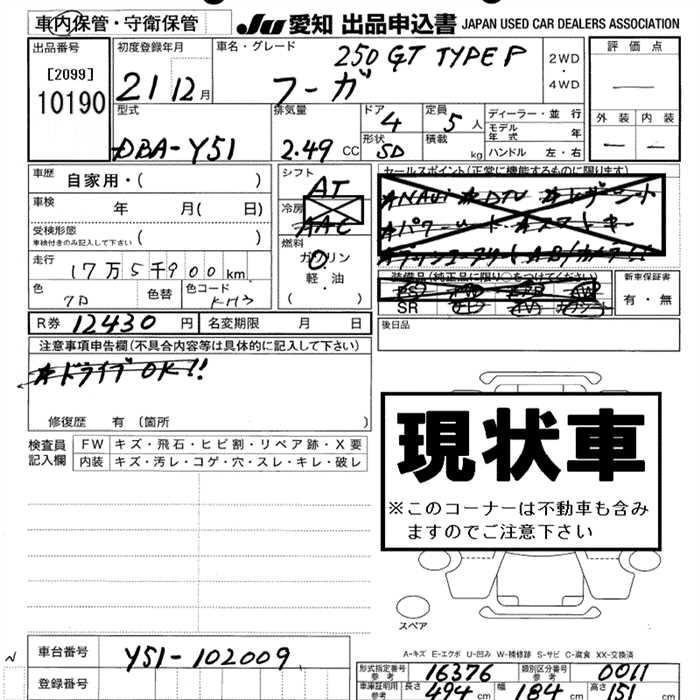 車内保管・守衛保管 JU 愛知 出品申込書 JAPAN USED CAR DEALERS ASSOCIATION
出品番号 初度登録年月 車名・グレード 250 GT TYPE P 2WD・4WD 評価点
[2099]
10190
21 12月 フーガ
外装 内装
型式 排気量 ドア 4 定員 5人 ディーラー・並行
モデル年式 年
DBA-Y51 2.49 CC 形状 SD 積載 kg ハンドル 左・右
車歴 自家用・( ) シフト AT セールスポイント(正常に機能するものに限ります)
車検 年 月( 日) 冷房 AAC
受検形態
車検付きのみ記入して下さい ( )
燃料 ガソリン
軽・油
( )
走行 17万5千900km 装備品(純正品に限り○をつけてください) 新車保証書
色 色替 色コード KH3 SR 有・無
R券 12430円 名変期限 月 日 後日品
注意事項申告欄(不具合内容等は具体的に記入して下さい)
★ドライブOK!!
修復歴 有(箇所 )
現状車
※このコーナーは不動車も含み
ますのでご注意下さい
検査員
記入欄
FW キズ・飛石・ヒビ割・リペア跡・X要
内装 キズ・汚レ・コゲ・穴・スレ・キレ・破レ
スペア
A-キズ E-エクボ U-凹み W-補修跡 S-サビ C-腐食 XX-交換済
車台番号 Y51-102009
登録番号
形式指定番号 参考 16376 類別区分番号 参考 0011
車庫証明用 参考 長さ 494cm 幅 184cm 高さ 151cm